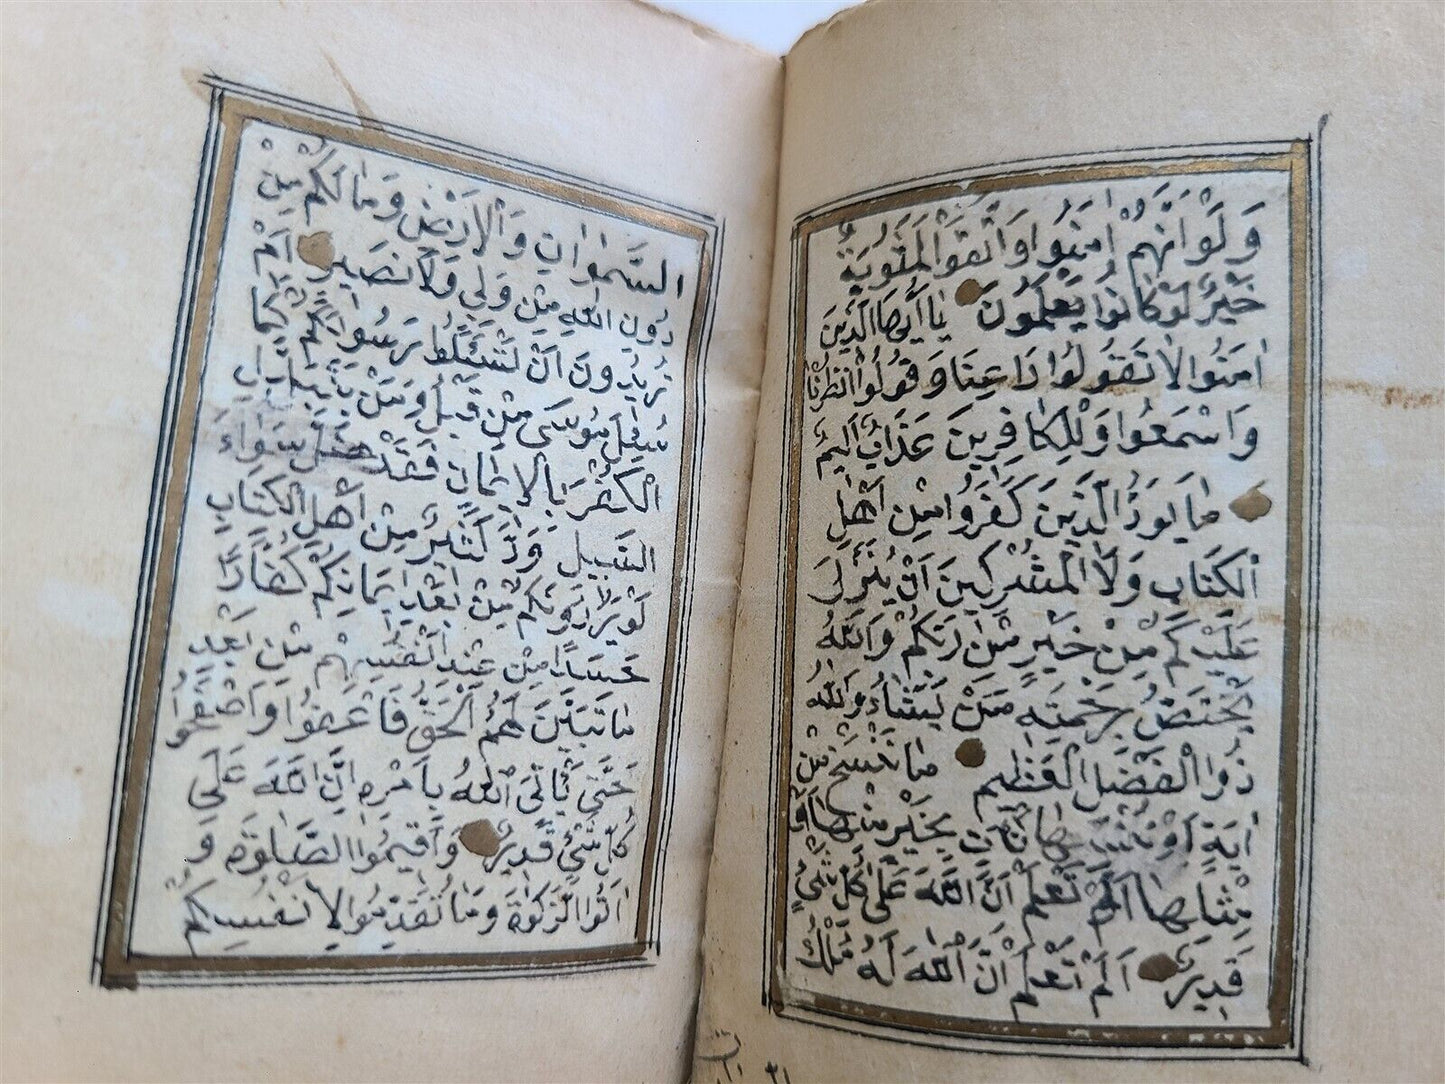 وَلَوْ اَنَّهُمْ اٰمَنُوا وَاتَّقَوْا لَمَثُوبَةٌ
خَيْرٌ لَوْ كَانُوا يَعْلَمُونَ يَا اَيُّهَا الَّذِينَ
اٰمَنُوا لَا تَقُولُوا رَاعِنَا وَقُولُوا انْظُرْنَا
وَاسْمَعُوا وَلِلْكَافِرِينَ عَذَابٌ اَلِيمٌ
مَا يَوَدُّ الَّذِينَ كَفَرُوا مِنْ اَهْلِ
الْكِتَابِ وَلَا الْمُشْرِكِينَ اَنْ يُنَزَّلَ
عَلَيْكُمْ مِنْ خَيْرٍ مِنْ رَبِّكُمْ وَاللّٰهُ
يَخْتَصُّ بِرَحْمَتِهِ مَنْ يَشَاءُ وَاللّٰهُ
ذُوا الْفَضْلِ الْعَظِيمِ مَا نَنْسَخْ مِنْ
اٰيَةٍ اَوْ نُنْسِهَا نَأْتِ بِخَيْرٍ مِنْهَا اَوْ
مِثْلِهَا اَلَمْ تَعْلَمْ اَنَّ اللّٰهَ عَلٰى كُلِّ شَيْءٍ
قَدِيرٌ اَلَمْ تَعْلَمْ اَنَّ اللّٰهَ لَهُ مُلْكُ
السَّمٰوَاتِ وَالْاَرْضِ وَمَا لَكُمْ مِنْ
دُونِ اللّٰهِ مِنْ وَلِيٍّ وَلَا نَصِيرٍ اَمْ
تُرِيدُونَ اَنْ تَسْئَلُوا رَسُولَكُمْ كَمَا
سُئِلَ مُوسٰى مِنْ قَبْلُ وَمَنْ يَتَبَدَّلِ
الْكُفْرَ بِالْاِيمَانِ فَقَدْ ضَلَّ سَوَاءَ
السَّبِيلِ وَدَّ كَثِيرٌ مِنْ اَهْلِ الْكِتَابِ
لَوْ يَرُدُّونَكُمْ مِنْ بَعْدِ اِيمَانِكُمْ كُفَّارًا
حَسَدًا مِنْ عِنْدِ اَنْفُسِهِمْ مِنْ بَعْدِ
مَا تَبَيَّنَ لَهُمُ الْحَقُّ فَاعْفُوا وَاصْفَحُوا
حَتّٰى يَأْتِيَ اللّٰهُ بِاَمْرِهِ اِنَّ اللّٰهَ عَلٰى
كُلِّ شَيْءٍ قَدِيرٌ وَاَقِيمُوا الصَّلٰوةَ وَ
اٰتُوا الزَّكٰوةَ وَمَا تُقَدِّمُوا لِاَنْفُسِكُمْ